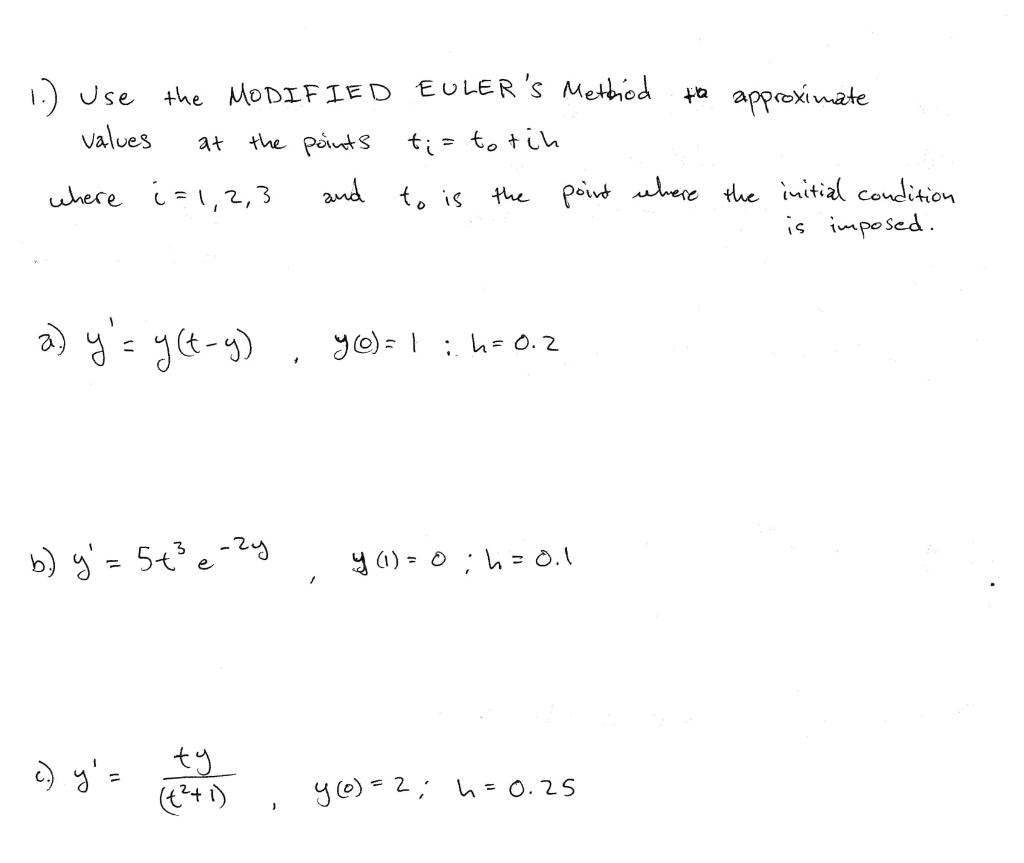 1.) Use the MODIFIED EULER'S Method to approximate
values at the points tᵢ = t₀ + ih
where i = 1, 2, 3 and t₀ is the point where the initial condition
is imposed.
a) y' = y(t-y) , y(0) = 1 ; h = 0.2
b) y' = 5t³ e^(-2y) , y(1) = 0 ; h = 0.1
c.) y' = ty/(t²+1) , y(0) = 2 ; h = 0.25